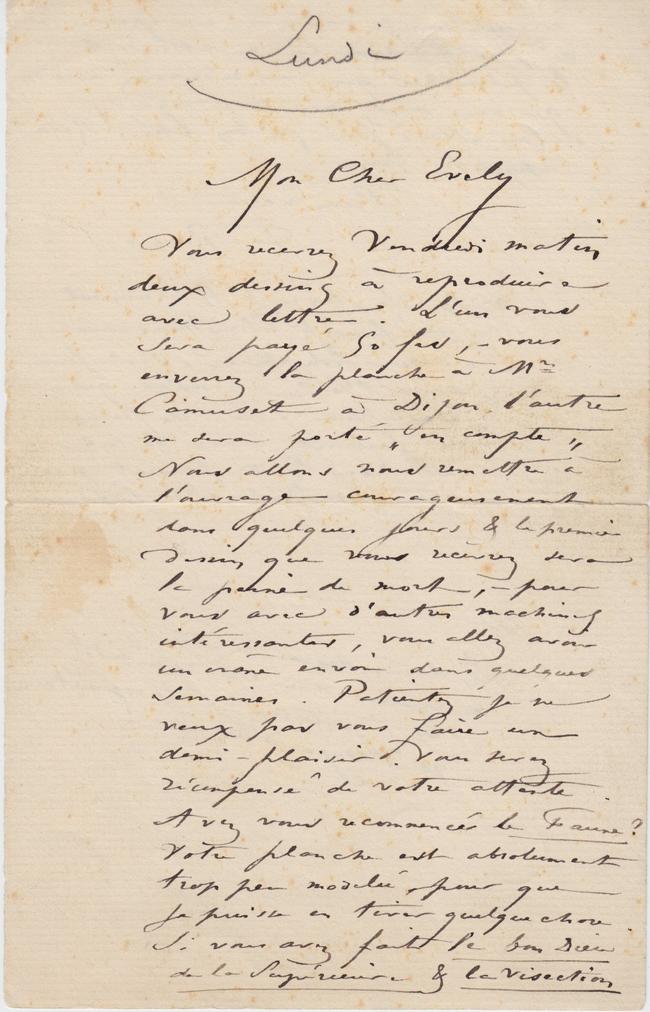 Lundi
Mon Cher Evely
Vous recevrez Vendredi matin
deux dessins à reproduire
avec lettre. L'un vous
sera payé 50 fcs, - vous
enverrez la planche à Mr
Camuset à Dijon, l'autre
me sera porté "en compte"
Nous allons nous remettre à
l'ouvrage courageusement
dans quelques jours & le premier
dessin que vous recevrez sera
la peine de mort, - pour
vous avec d'autres machins
intéressantes, vous allez avoir
un crâne envoi dans quelques
semaines. Patientez je ne
veux pas vous faire un
demi-plaisir. Vous serez
récompensé de votre attente.
Avez vous recommencé le Faune?
Votre planche est absolument
trop peu modelée, pour que
je puisse en tirer quelque chose
Si vous avez faite le bon Dieu
de la Supérieure & la visection